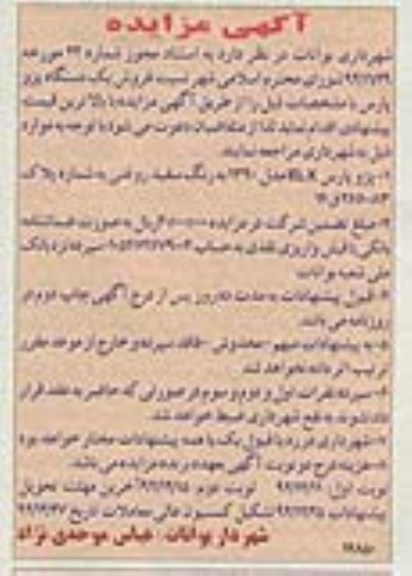 آگهی مزایده
شهرداری بوانات در نظر دارد به استناد مجوز شماره ۴۳ مورخه
شورای محترم اسلامی شهر نسبت فروش یک دستگاه پژو
پارس با مشخصات ذیل را از طریق آگهی مزایده با بالاترین قیمت
پیشنهادی اقدام نماید لذا از متقاضیان دعوت می شود با توجه به موارد
ذیل به شهرداری مراجعه نمایند.
۱- پژو پارس ELX مدل ۱۳۹۰ به رنگ سفید روغنی به شماره پلاک
۲- مبلغ تضمین شرکت در مزایده ریال به صورت ضمانتنامه
بانکی یا فیش واریزی نقدی به حساب سپرده نزد بانک
ملی شعبه بوانات
۳- قبول پیشنهادات به مدت روز پس از درج آگهی چاپ دوم در
روزنامه می باشد.
به پیشنهادات مبهم - مخدوش - فاقد سپرده و خارج از موعد مقرر
ترتیب اثر داده نخواهد شد
سپرده نفرات اول و دوم و سوم در صورتی که حاضر به عقد قرار
داد نشوند به نفع شهرداری ضبط خواهد شد.
شهرداری در رد یا قبول یک یا همه پیشنهادات مختار خواهد بود
هزینه درج دو نوبت آگهی بعهده برنده مزایده می باشد.
نوبت اول: نوبت دوم: آخرین مهلت تحویل
پیشنهادات تشکیل کمسیون عالی معاملات تاریخ
شهردار بوانات - عباس موحدی نژاد